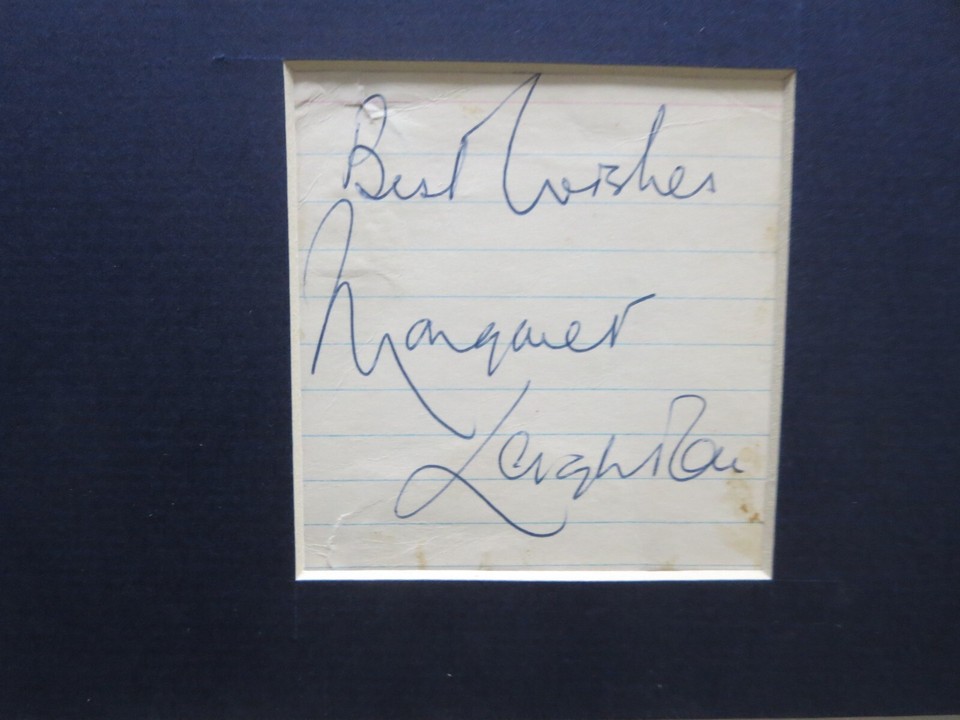 Best Wishes
Margaret
Leighton